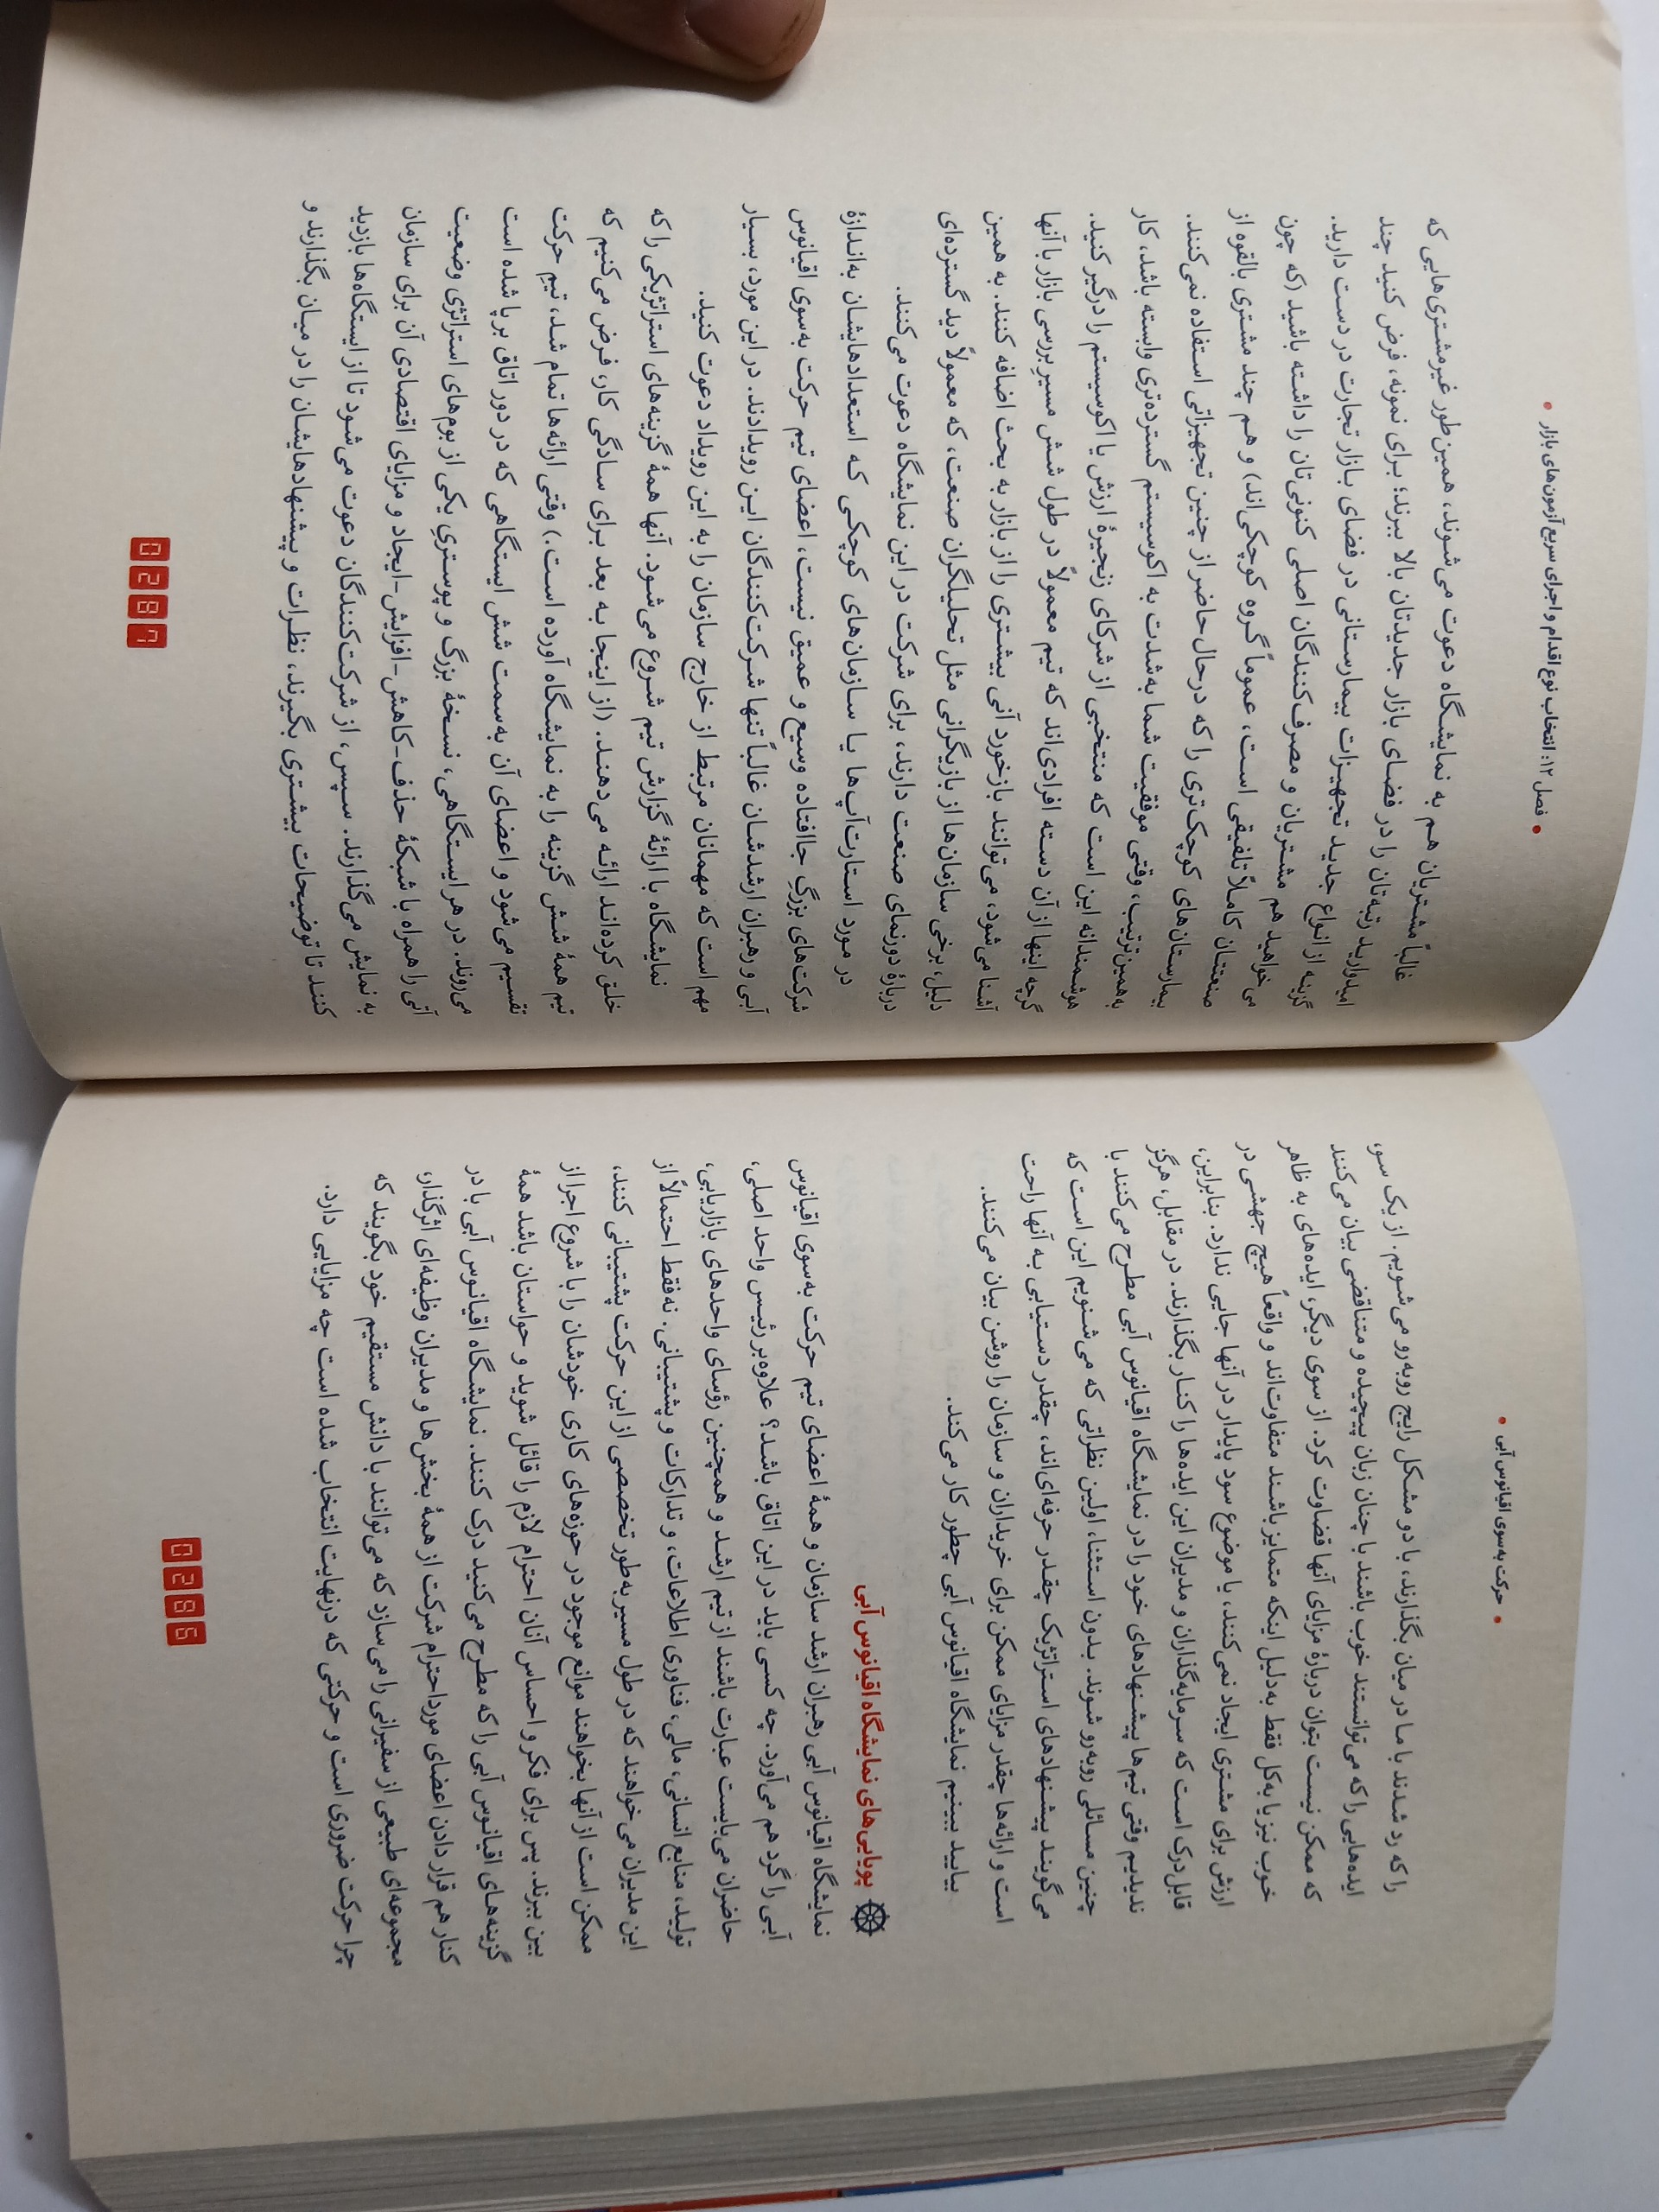 • حرکت به‌سوی اقیانوس آبی •
را که رد شدند با ما در میان بگذارند، با دو مشکل رایج روبه‌رو می‌شویم. از یک سو،
ایده‌هایی را که می‌توانستند خوب باشند با چنان زبان پیچیده و متناقضی بیان می‌کنند
که ممکن نیست بتوان دربارهٔ مزایای آنها قضاوت کرد. از سوی دیگر، ایده‌های به ظاهر
خوب نیز یا به‌کل فقط به‌دلیل اینکه متمایز باشند متفاوت‌اند و واقعاً هیچ جهشی در
ارزش برای مشتری ایجاد نمی‌کنند، یا موضوع سود پایدار در آنها جایی ندارد. بنابراین،
قابل‌درک است که سرمایه‌گذاران و مدیران این ایده‌ها را کنار بگذارند. در مقابل، هرگز
ندیدیم وقتی تیم‌ها پیشنهادهای خود را در نمایشگاه اقیانوس آبی مطرح می‌کنند با
چنین مسائلی روبه‌رو شوند. بدون استثنا، اولین نظراتی که می‌شنویم این است که
می‌گویند پیشنهادهای استراتژیک چقدر حرفه‌ای‌اند، چقدر دستیابی به آنها راحت
است و ارائه‌ها چقدر مزایای ممکن برای خریداران و سازمان را روشن بیان می‌کنند.
بیایید ببینیم نمایشگاه اقیانوس آبی چطور کار می‌کند.
پویایی‌های نمایشگاه اقیانوس آبی
نمایشگاه اقیانوس آبی رهبران ارشد سازمان و همهٔ اعضای تیم حرکت به‌سوی اقیانوس
آبی را گرد هم می‌آورد. چه کسی باید در این اتاق باشد؟ علاوه‌بر رئیس واحد اصلی،
حاضران می‌بایست عبارت باشند از تیم ارشد و همچنین رؤسای واحدهای بازاریابی،
تولید، منابع انسانی، مالی، فناوری اطلاعات، و تدارکات و پشتیبانی. نه‌فقط احتمالاً از
این مدیران می‌خواهند که در طول مسیر به‌طور تخصصی از این حرکت پشتیبانی کنند،
ممکن است از آنها بخواهند موانع موجود در حوزه‌های کاری خودشان را با شروع اجرا از
بین ببرند. پس برای فکر و احساس آنان احترام لازم را قائل شوید و حواستان باشد همهٔ
گزینه‌های اقیانوس آبی را که مطرح می‌کنید درک کنند. نمایشگاه اقیانوس آبی با در
کنار هم قرار دادن اعضای مورداحترام شرکت از همهٔ بخش‌ها و مدیران وظیفه‌ای اثرگذار،
مجموعه‌ای طبیعی از سفیرانی را می‌سازد که می‌توانند با دانش مستقیم خود بگویند که
چرا حرکت ضروری است و حرکتی که درنهایت انتخاب شده است چه مزایایی دارد.
0286
• فصل ۱۲: انتخاب نوع اقدام و اجرای سریع آزمون‌های بازار •
غالباً مشتریان هم به نمایشگاه دعوت می‌شوند، همین‌طور غیرمشتری‌هایی که
امیدوارید رتبه‌تان را در فضای بازار جدیدتان بالا ببرند؛ برای نمونه، فرض کنید چند
گزینه از انواع جدید تجهیزات بیمارستانی در فضای بازار تجارت در دست دارید.
می‌خواهید هم مشتریان و مصرف‌کنندگان اصلی کنونی‌تان را داشته باشید (که چون
صنعتتان کاملاً تلفیقی است، عموماً گروه کوچکی‌اند) و هم چند مشتری بالقوه از
بیمارستان‌های کوچک‌تری را که درحال‌حاضر از چنین تجهیزاتی استفاده نمی‌کنند.
به‌همین‌ترتیب، وقتی موفقیت شما به‌شدت به اکوسیستم گسترده‌تری وابسته باشد، کار
هوشمندانه این است که منتخبی از شرکای زنجیرهٔ ارزش یا اکوسیستم را درگیر کنید.
گرچه اینها از آن دسته افرادی‌اند که تیم معمولاً در طول شش مسیرِ بررسی بازار با آنها
آشنا می‌شود، می‌توانند بازخورد آنی بیشتری را از بازار به بحث اضافه کنند. به همین
دلیل، برخی سازمان‌ها از بازیگرانی مثل تحلیلگران صنعت، که معمولاً دید گسترده‌ای
دربارهٔ دورنمای صنعت دارند، برای شرکت در این نمایشگاه دعوت می‌کنند.
در مورد استارت‌آپ‌ها یا سازمان‌های کوچکی که استعدادهایشان به‌اندازهٔ
شرکت‌های بزرگِ جاافتاده وسیع و عمیق نیست، اعضای تیم حرکت به‌سوی اقیانوس
آبی و رهبران ارشدشان غالباً تنها شرکت‌کنندگان این رویدادند. در این مورد، بسیار
مهم است که مهمانان مرتبط از خارج سازمان را به این رویداد دعوت کنید.
نمایشگاه با ارائهٔ گزارش تیم شروع می‌شود. آنها همهٔ گزینه‌های استراتژیکی را که
خلق کرده‌اند ارائه می‌دهند. (از اینجا به بعد برای سادگی کار، فرض می‌کنیم که
تیم همهٔ شش گزینه را به نمایشگاه آورده است.) وقتی ارائه‌ها تمام شد، تیمِ حرکت
تقسیم می‌شود و اعضای آن به‌سمت شش ایستگاهی که در دور اتاق برپا شده است
می‌روند. در هر ایستگاهی، نسخهٔ بزرگ و پوستریِ یکی از بوم‌های استراتژی وضعیت
آتی را همراه با شبکهٔ حذف-کاهش-افزایش-ایجاد و مزایای اقتصادی آن برای سازمان
به نمایش می‌گذارند. سپس، از شرکت‌کنندگان دعوت می‌شود تا از ایستگاه‌ها بازدید
کنند تا توضیحات بیشتری بگیرند، نظرات و پیشنهادهایشان را در میان بگذارند و
0287